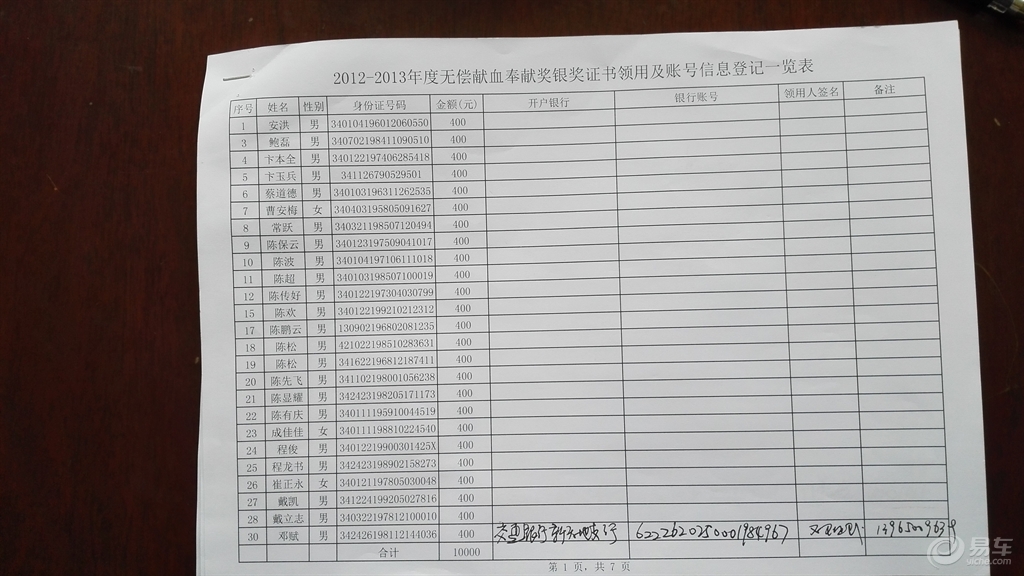 2012-2013年度无偿献血奉献奖银奖证书领用及账号信息登记一览表
序号 姓名 性别 身份证号码 金额(元) 开户银行 银行账号 领用人签名 备注
1 安洪 男 340104196012060550 400
3 鲍磊 男 340702198411090510 400
4 卞本全 男 340122197406285418 400
5 卞玉兵 男 341126790529501 400
6 蔡道德 男 340103196311262535 400
7 曹安梅 女 340403195805091627 400
8 常跃 男 340321198507120494 400
9 陈保云 男 340123197509041017 400
10 陈波 男 340104197106111018 400
11 陈超 男 340103198507100019 400
12 陈传好 男 340122197304030799 400
15 陈欢 男 340122199210212312 400
17 陈鹏云 男 130902196802081235 400
18 陈松 男 421022198510283631 400
19 陈松 男 341622196812187411 400
20 陈先飞 男 341102198001056238 400
21 陈显耀 男 342423198205171173 400
22 陈有庆 男 340111195910044519 400
23 成佳佳 女 340111198810224540 400
24 程俊 男 34012219900301425X 400
25 程龙书 男 342423198902158273 400
26 崔正永 女 340121197805030048 400
27 戴凯 男 341224199205027816 400
28 戴立志 男 340322197812100010 400
30 邓赋 男 342426198112144036 400 交通银行 6222620250001984967
合计 10000
第 1 页，共 7 页
易车
yiche.com